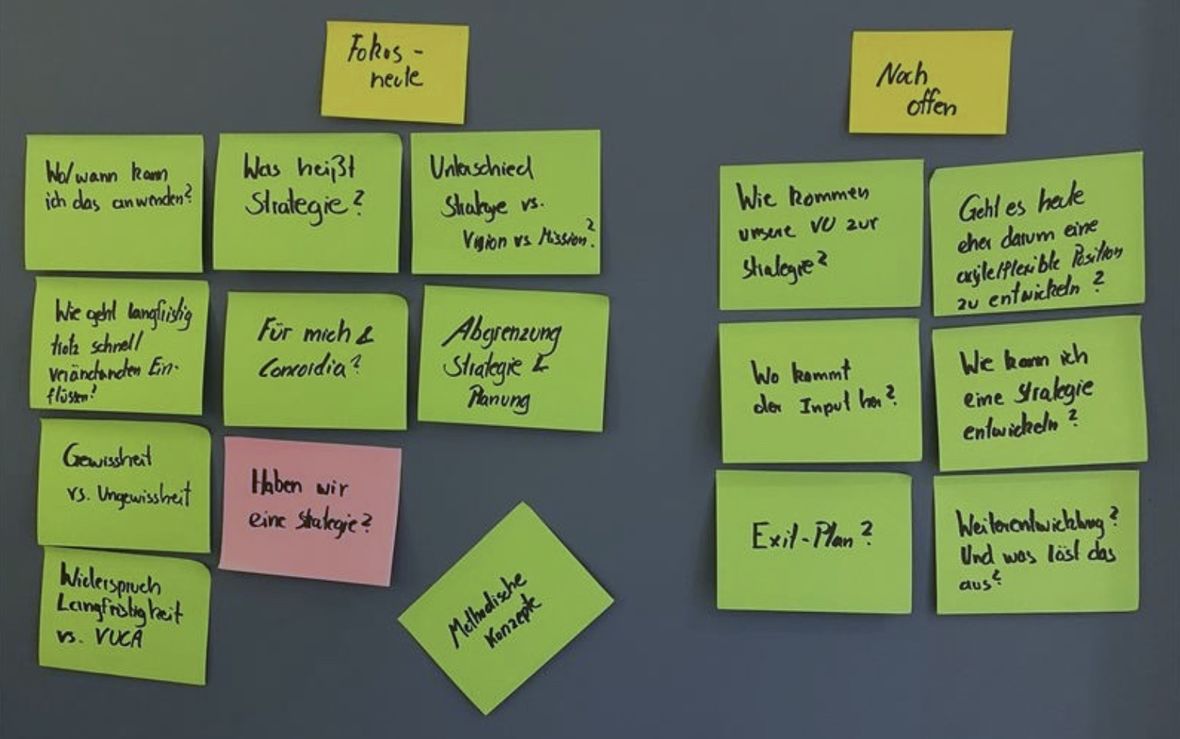 Fokus -
heute
Wo/wann kann
ich das anwenden?
Was heißt
Strategie?
Unterschied
Strategie vs.
Vision vs. Mission?
Wie geht langfristig
trotz schnell
verändernden Ein-
flüssen?
Für mich &
Concordia?
Abgrenzung
Strategie &
Planung
Gewissheit
vs. Ungewissheit
Haben wir
eine Strategie?
Widerspruch
Langfristigkeit
vs. VUCA
Methodische
Konzepte
Noch
offen
Wie kommen
unsere VU zur
Strategie?
Geht es heute
eher darum eine
agile/flexible Position
zu entwickeln?
Wo kommt
der Input her?
Wie kann ich
eine Strategie
entwickeln?
Exit-Plan?
Weiterentwicklung?
Und was löst das
aus?